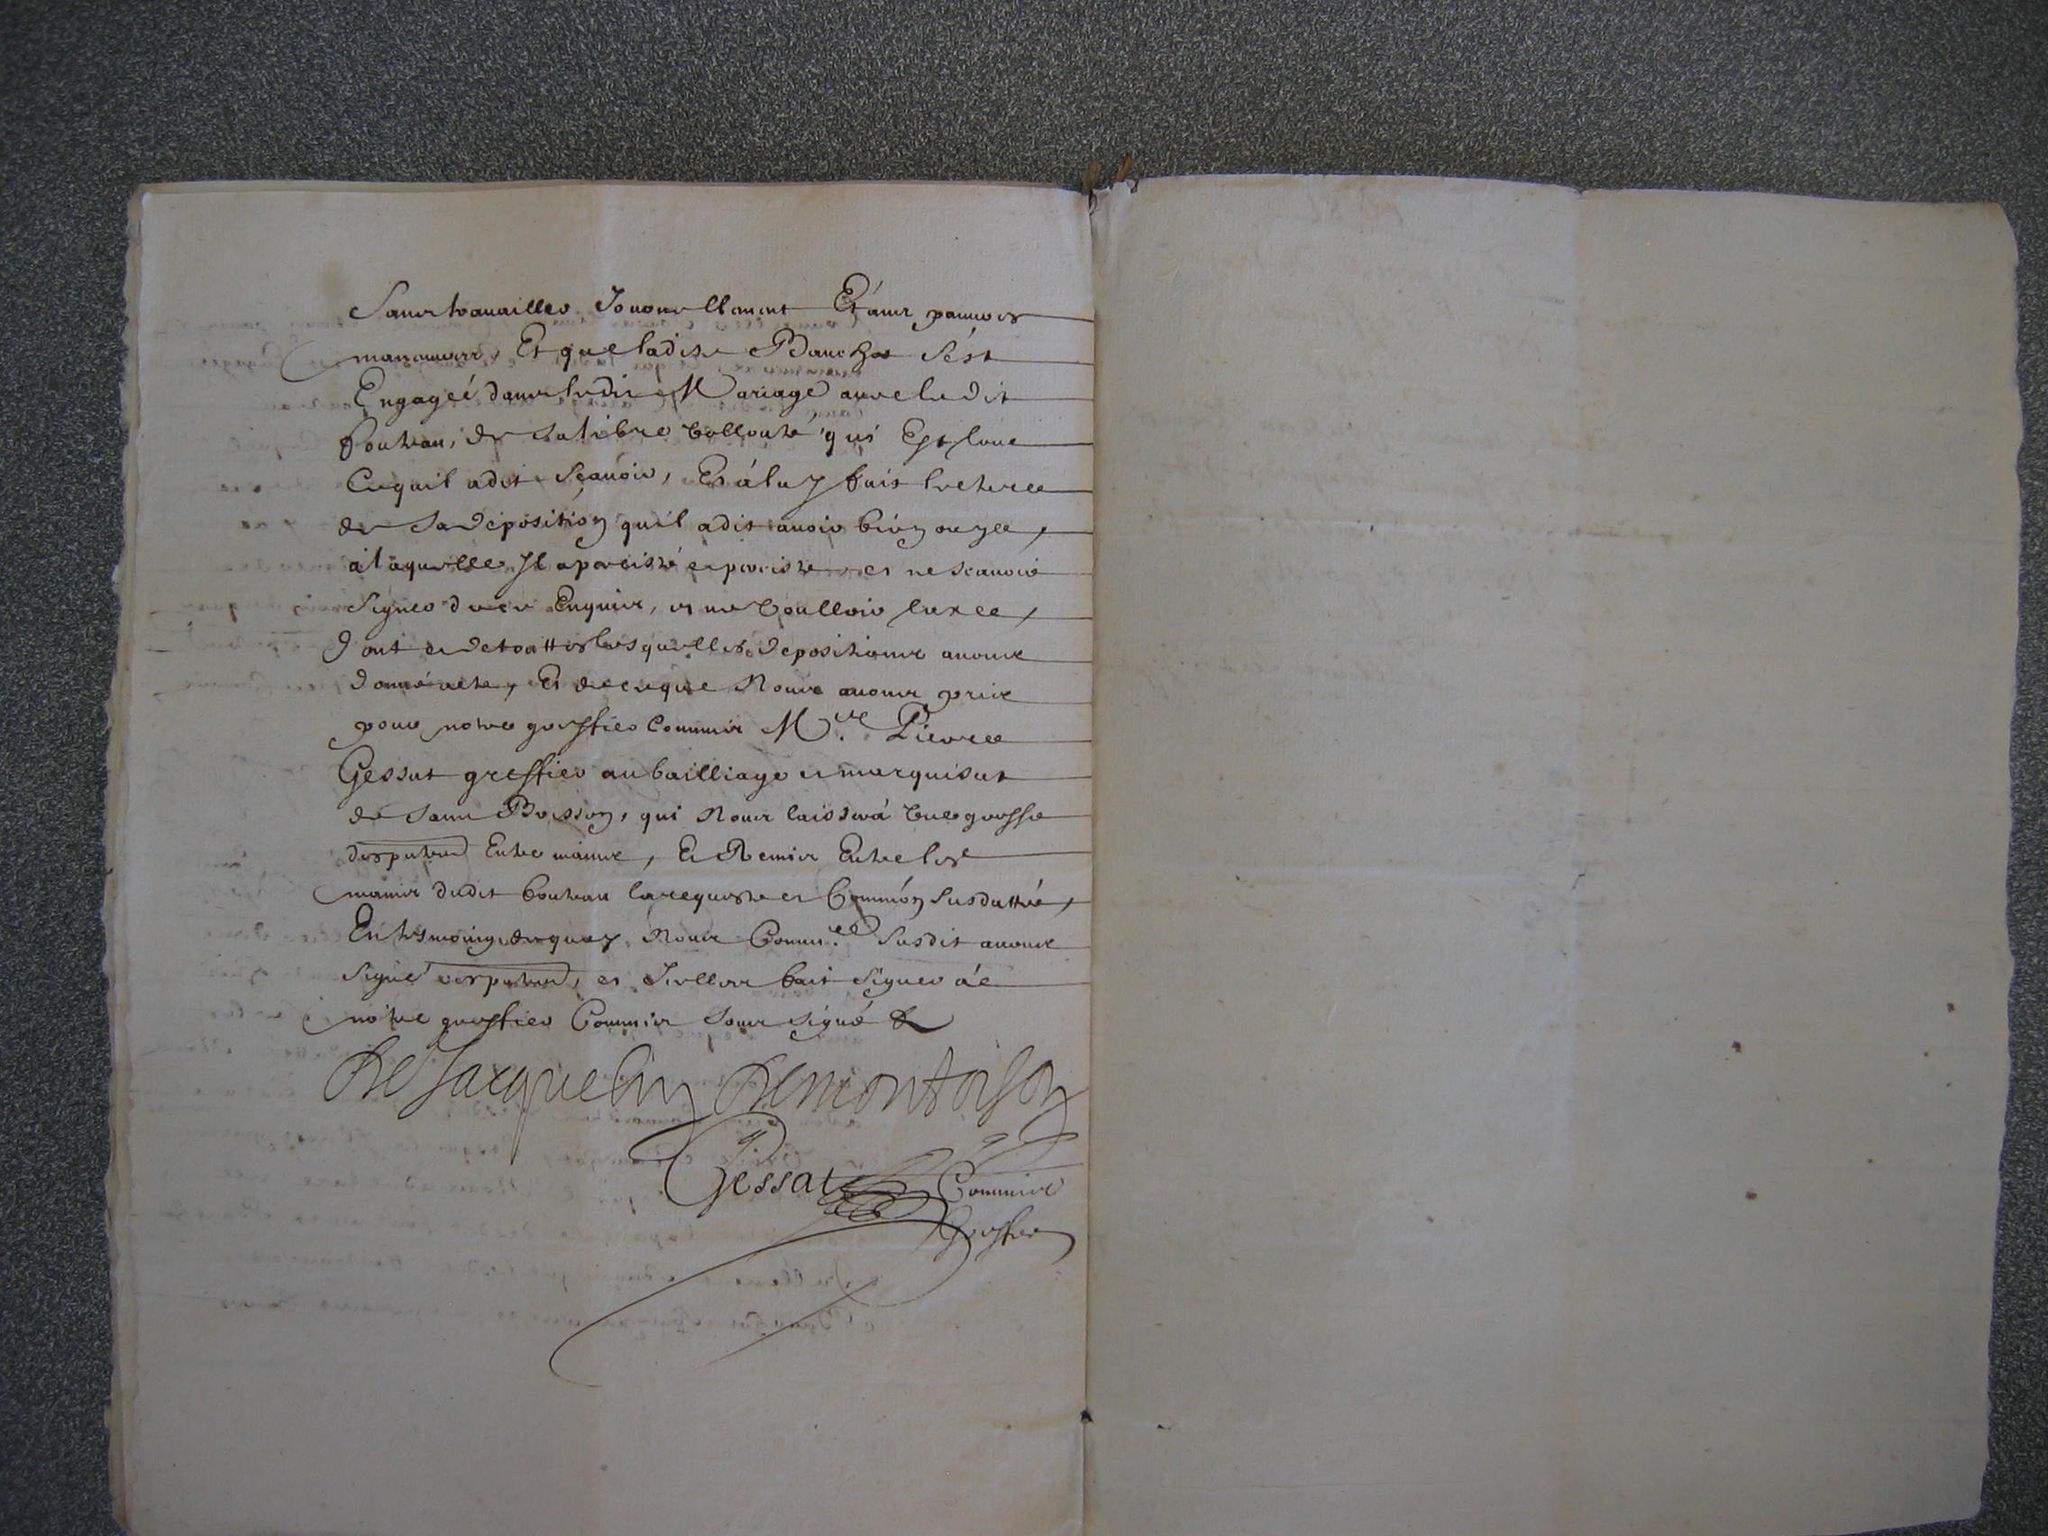 Sans travailler Journellement Etans pauvres
manouvrs, Et que ladite Bauchot s'est
Engageé dans ledit Mariage avec le dit
Pouteau, de sa libre vollonté qui Est tout
Ce quil a dit sçauoir, Et á luy fait lecture
de sa deposition quil a dit auoir bien ouye,
a laquelle Jl a percisté et perciste et ne scauoir
signer de ce Enquis, et ne voulloir taxe,
dont et de touttes lesquelles depositions auons
donné acte, Et de ce que Nous auons pris
pour notre greffier Commis M.re Pierre
Gessat greffier au bailliage et marquisat
de Saint Brisson, qui Nous laissera une grosse
des presentes Entre mains, Et Remis Entre les
mains dudit Pouteau la requeste et Common susdattée,
En tesmoing de quoy Nous Comm.re susdit auons
signé ces presentes, et Icelles fait signer á
notre greffier Commis sous signé &
De Jacquelin Demontoison
Gessat Commis
Greffier